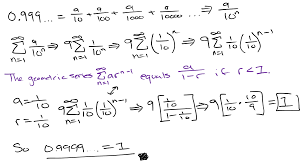 0.999... = 9/10 + 9/100 + 9/1000 + 9/10000 ... ⇒ 9/10^n
∞∑n=1 9/10^n ⇒ 9 ∞∑n=1 1/10^n ⇒ 9 ∞∑n=1 (1/10)^n ⇒ 9 ∞∑n=1 1/10 (1/10)^n-1
The geometric series ∞∑n=1 ar^n-1 equals a/1-r if r < 1.
a = 1/10
r = 1/10
9 ∞∑n=1 1/10 (1/10)^n-1 ⇒ 9 [ 1/10 / 1-1/10 ] ⇒ 9 [ 1/10 · 10/9 ] = 1
So 0.9999... = 1